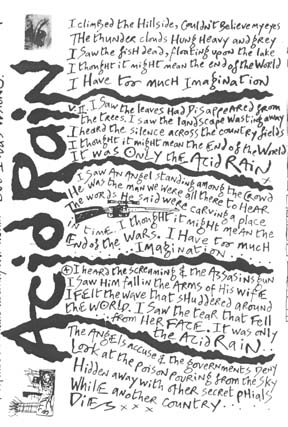 Acid Rain
I climbed the Hillside, Couldn't Believe my eyes
The thunder clouds Hung Heavy and grey
I Saw the fish dead, floating upon the lake
I thought it might mean the end of the World
I Have too much Imagination
V.II. I Saw the leaves Had Disappeared from
the trees. I saw the landscape wasting away
I heard the silence across the country fields
I thought it might mean the End of the World.
It was Only the Acid RAIN
I Saw AN Angel standing among the Crowd
He was the man we were all there to Hear
The words He said were carving a place
in time. I thought it might mean the
End of the Wars. I Have too much
Imagination
I heard the screaming & the Assasins gun
I Saw Him fall in the Arms of His wife
I felt the wave that shuddered around
the World. I Saw the tear that fell
from Her Face. It was only
the Acid Rain.
The Angels accuse & the governments Deny
Look at the Poison Pouring from the Sky
Hidden away with other secret phials
While another country....
Dies x x x